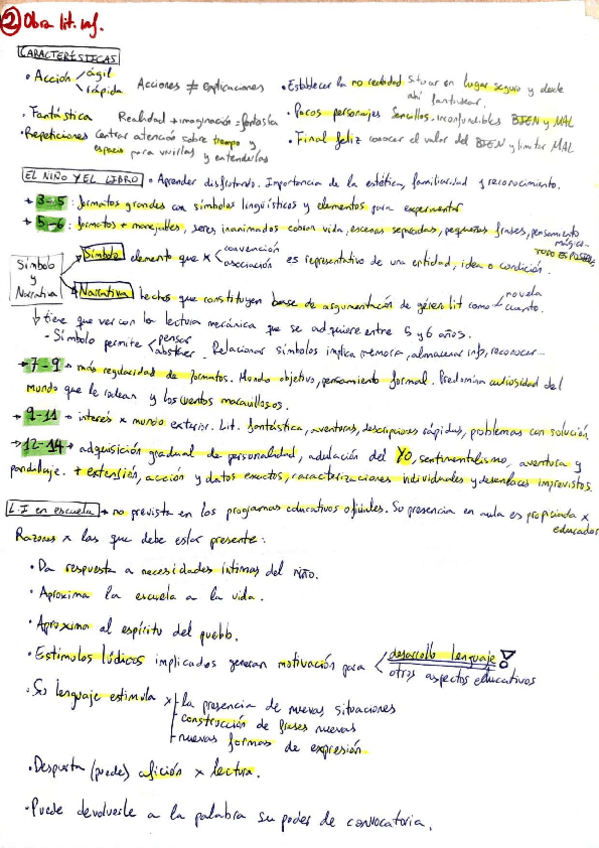 ② Obra lit. inf.
CARACTERÍSTICAS
• Acción ágil rápida Acciones ≠ explicaciones
• Fantástica Realidad + imaginación = fantasía
• Repeticiones Centrar atención sobre tiempo y espacio para vivirlas y entenderlas
• Establecer la no realidad situar en lugar seguro y desde ahí fantasear.
• Pocos personajes Sencillos, inconfundibles BIEN y MAL
• Final feliz conocer el valor del BIEN y limitar MAL
EL NIÑO Y EL LIBRO • Aprender disfrutando. Importancia de la estética, familiaridad y reconocimiento.
+ 3-5: formatos grandes con símbolos lingüísticos y elementos para experimentar
+ 5-6: formatos + manejables, seres inanimados cobran vida, escenas separadas, pequeñas frases, pensamiento mágico- TODO ES POSIBLE
Símbolo y Narrativa
Símbolo elemento que x convención asociación es representativo de una entidad, idea o condición.
Narrativa hechos que constituyen base de argumentación de géneros lit como novela cuento.
↳ tiene que ver con la lectura mecánica que se adquiere entre 5 y 6 años.
- Símbolo permite pensar abstraer. Relacionar símbolos implica memoria, almacenar info, reconocer...
→ 7-9 → más regularidad de formatos. Mundo objetivo, pensamiento formal. Predomina curiosidad del
mundo que le rodean y los cuentos maravillosos.
→ 9-11 → interés x mundo exterior. Lit. fantástica, aventuras, descripciones rápidas, problemas con solución
→ 12-14 → adquisición gradual de personalidad, adulación del YO, sentimentalismo, aventura y
pandillaje. + extensión, acción y datos exactos, caracterizaciones individuales y desenlaces imprevistos.
L.I en escuela → no prevista en los programas educativos oficiales. Su presencia en aula es propiciada x educador
Razones x las que debe estar presente:
• Da respuesta a necesidades íntimas del niño.
• Aproxima la escuela a la vida.
• Aproxima al espíritu del pueblo.
• Estímulos lúdicos implicados generan motivación para desarrollo lenguaje! otros aspectos educativos
• Su lenguaje estimula x - la presencia de nuevas situaciones
- construcción de frases nuevas
- nuevas formas de expresión
• Despierta (puede) afición x lectura.
• Puede devolverle a la palabra su poder de convocatoria.